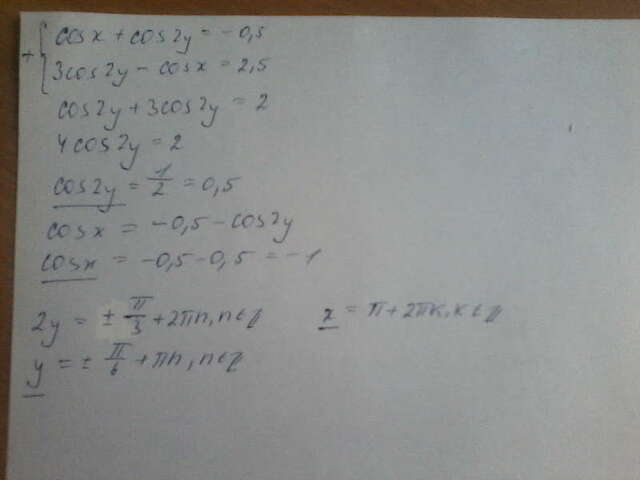 + { cos x + cos 2y = -0,5
3cos 2y - cos x = 2,5
cos 2y + 3cos 2y = 2
4cos 2y = 2
cos 2y = 1/2 = 0,5
cos x = -0,5 - cos 2y
cos x = -0,5 - 0,5 = -1
2y = ± π/3 + 2πn, n∈ℤ x = π + 2πk, k∈ℤ
y = ± π/6 + πn, n∈ℤ